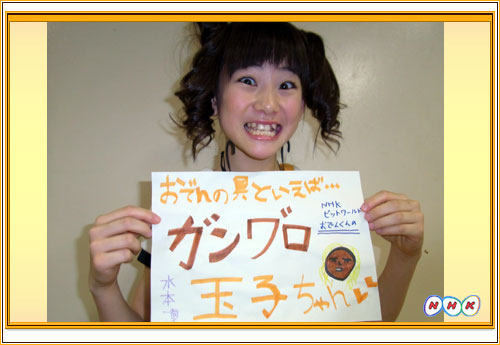 おでんの具といえば…
NHK
ビットワールド
おでんくんの
ガングロ
玉子ちゃん
水本
NHK